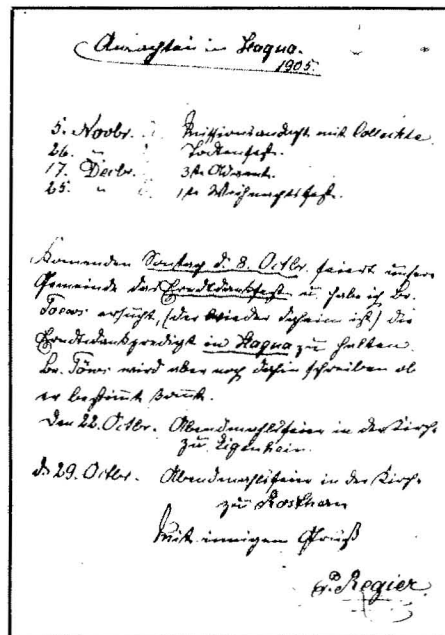 Andachten in Hague.
1905.
5. Novbr. Missionsandacht mit Collecte
26. " Todtenfest.
17. Decbr. 3te Advent.
25. " 1te Weihnachtsfest.
Komenden Sontag d. 8. Octbr. feiert unsere
Gemeinde das Erndtdankfest u. habe ich Br.
Toews ersucht, (der wieder daheim ist) die
Erndtdankpredigt in Hague zu halten.
Br. Töws wird aber noch dahin schreiben ob
er bestimmt kommt.
Den 22. Octbr. Abendmahlsfeier in der Kirche
zu Eigenheim.
d. 29. Octbr. Abendmahlsfeier in der Kirche
zu Rosthern
Mit innigem Gruß
P. Regier.